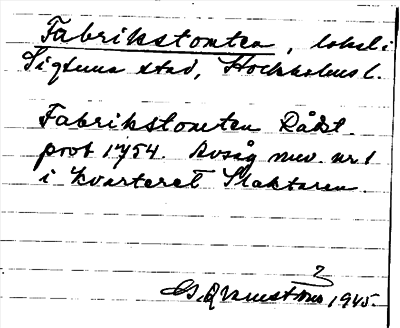 Fabrikstomten, lokal i
Sigtuna stad, Stockholms l.
Fabrikstomten Rådst.
prot 1754. Avsåg nuv. nr 1
i kvarteret Slaktaren.
1945.